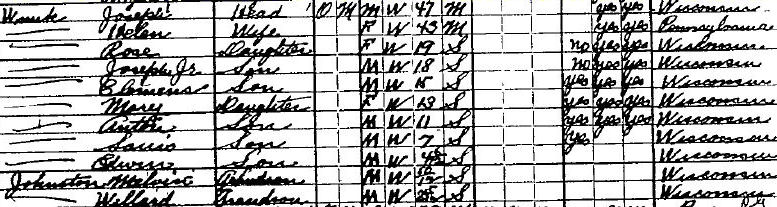 Joseph Head O M M W 47 M yes yes Wisconsin
Helen Wife F W 43 M yes yes Pennsylvania
Rose Daughter F W 19 S no yes yes Wisconsin
Joseph Jr Son M W 18 S no yes yes Wisconsin
Clemens Son M W 15 S yes yes yes Wisconsin
Mary Daughter F W 13 S yes yes yes Wisconsin
Anton Son M W 11 S yes yes yes Wisconsin
Louis Son M W 7 S yes Wisconsin
Edwin Son M W S Wisconsin
Johnston Melvin Grandson M W S Wisconsin
Willard Grandson M W S Wisconsin